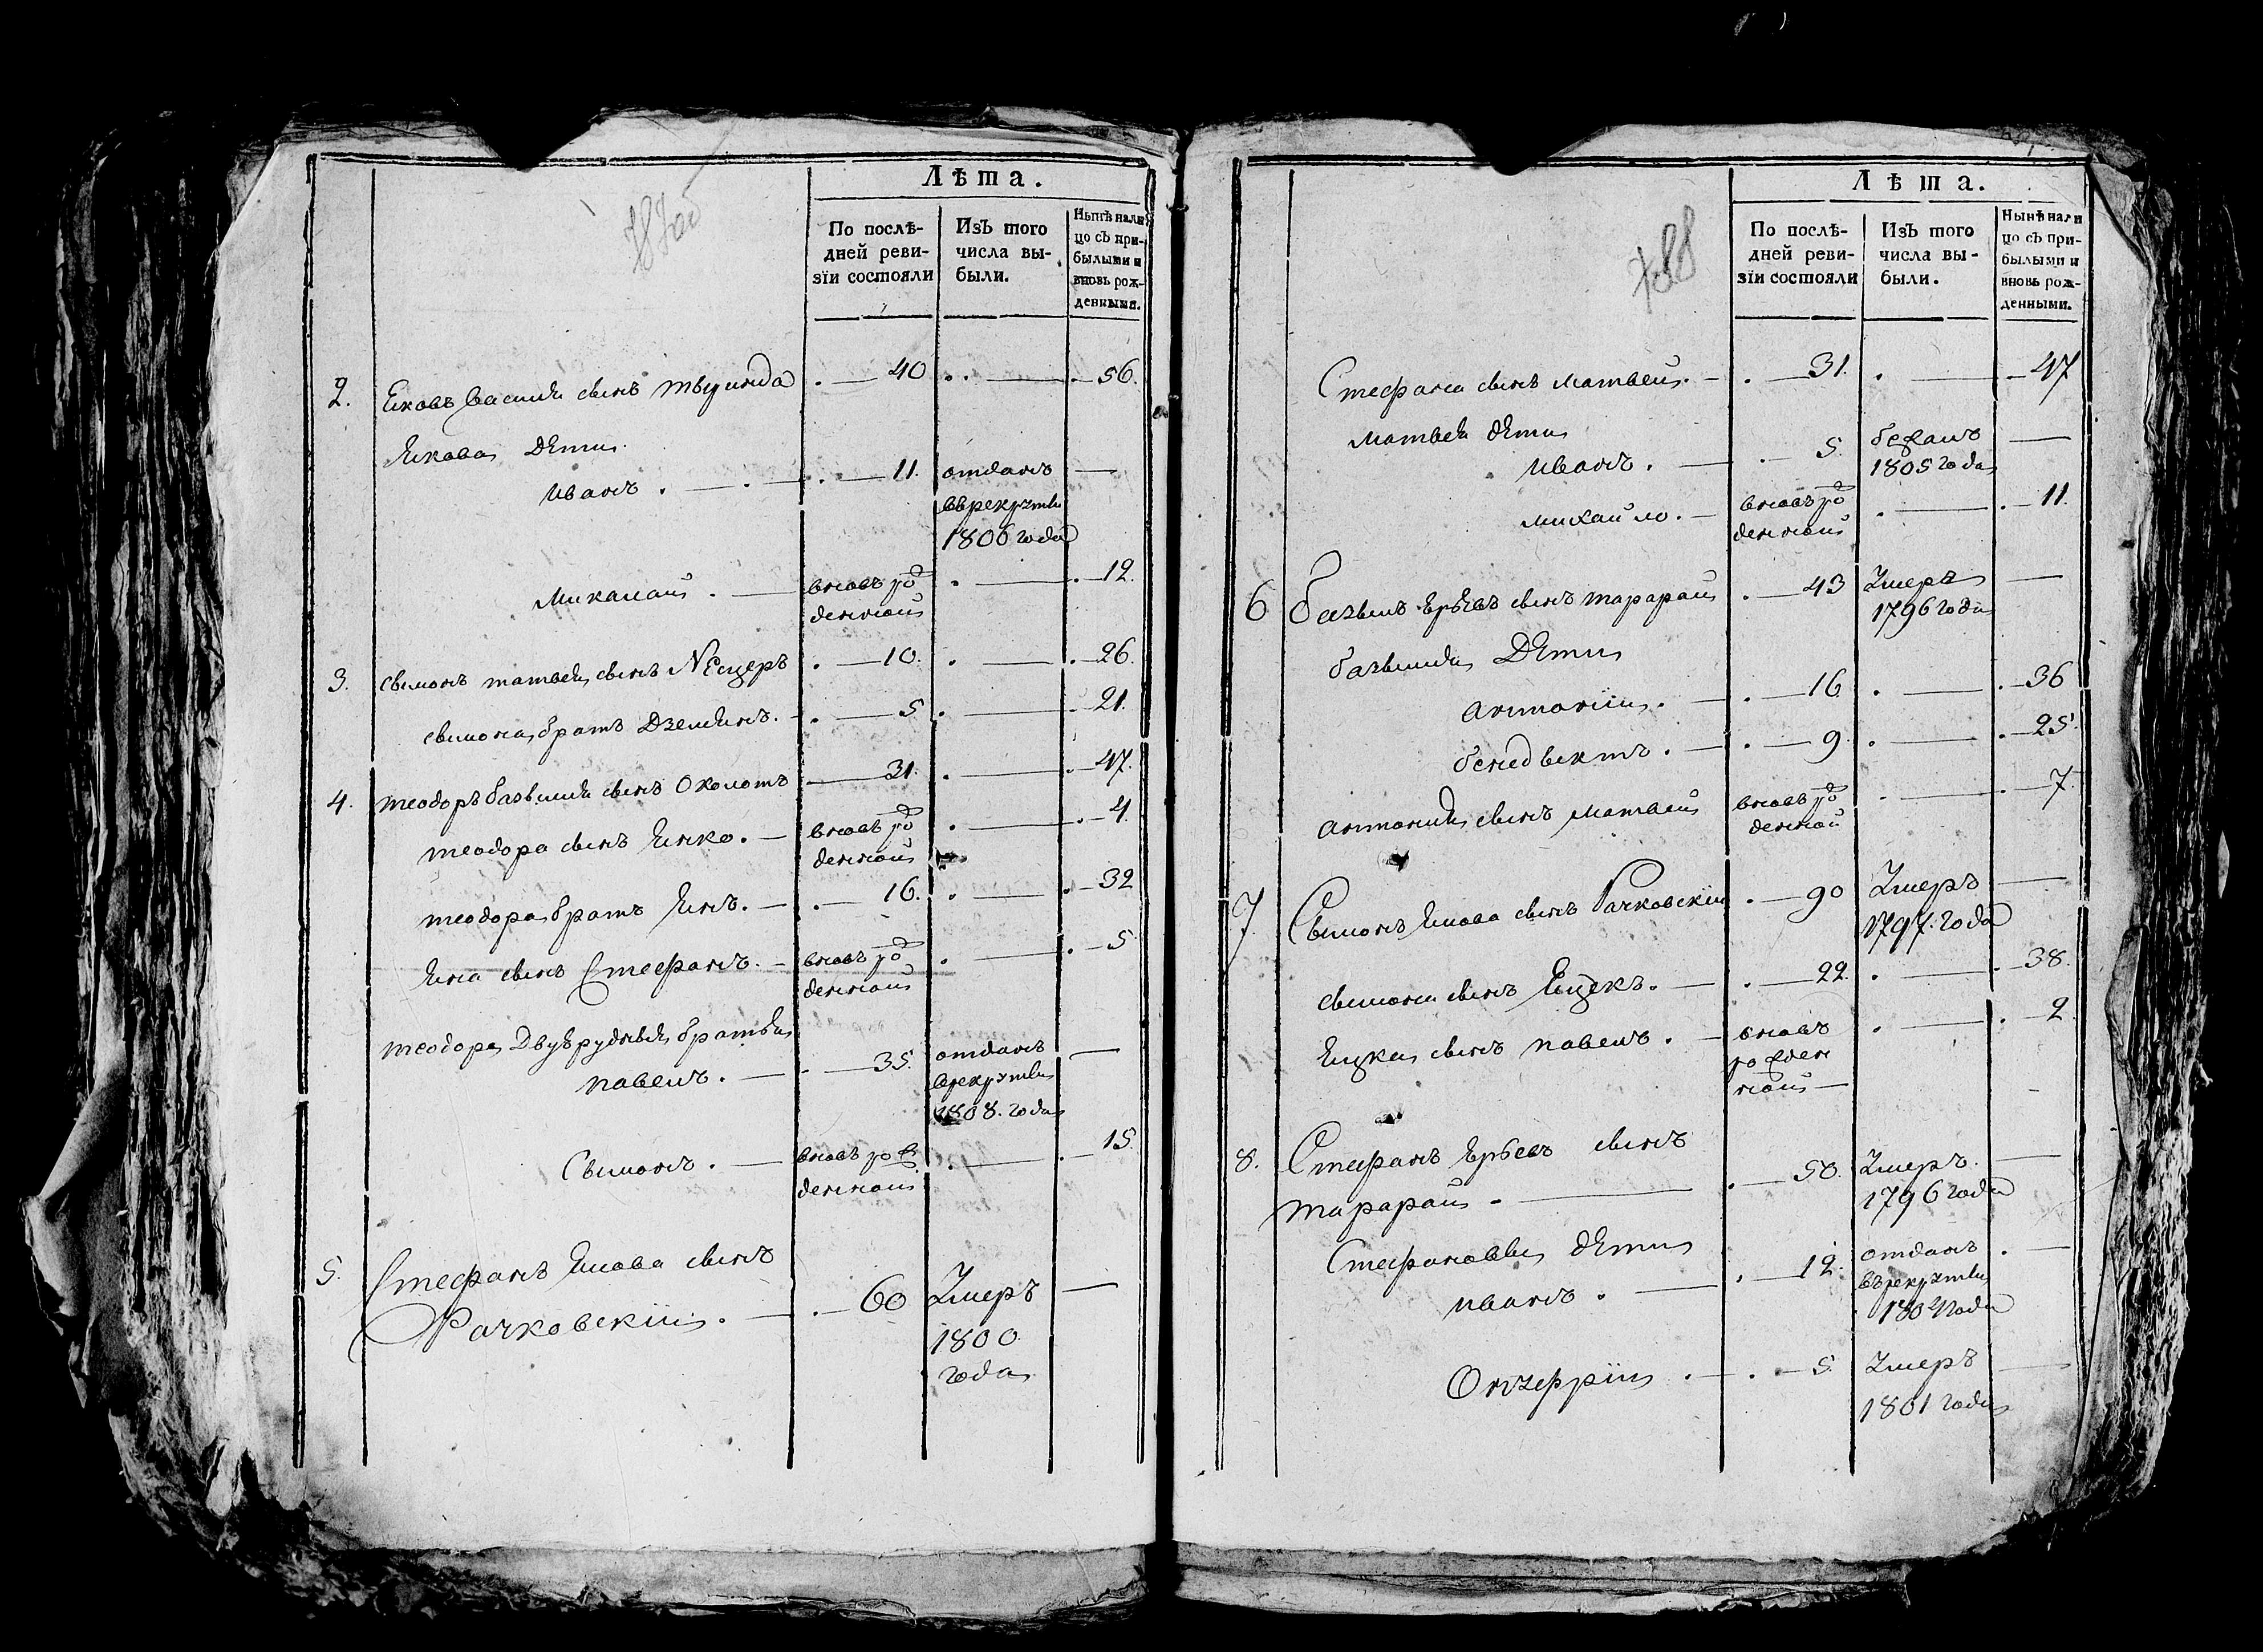 Лѣта.
По послѣ-
дней реви-
зїи состояли
Изъ того
числа вы-
были.
Нынѣ нали
цо съ при-
былыми и
вновь рож-
денными.
2. Яковъ василя сынъ 40 56.
Якова Дети
иванъ. 11. отданъ
1806 года
миколай. вновъ ро 12.
денной
3. сымонъ матвея сынъ 10. 26.
сымона братъ 5 21.
4. теодоръ базылия сынъ Околотъ 31. 47.
теодора сынъ Янко. вновъ ро 4.
денной
теодора братъ Янъ. 16. 32
Яна сынъ Стефанъ. вновъ ро 5
денной
теодора братья
павелъ. 35. отданъ
1808. года
Сымонъ. вновъ рож 15.
денной
5. Стефанъ сынъ
Рачковскiй. 60 Умеръ
1800
года
788
Лѣта.
По послѣ-
дней реви-
зїи состояли
Изъ того
числа вы-
были.
Нынѣ нали
цо съ при-
былыми и
вновь рож-
денными.
Стефана сынъ матвей. 31. 47
матвея дети
иванъ. 5. бежалъ
1805 года
михайло. вновъ ро 11.
денной
6 базылъ сынъ тарарай 43 Умеръ
1796 года
базылия Дети
антонiй. 16. 36
бенедыктъ. 9. 25.
антония сынъ матвей вновъ ро 7.
денной
7. Сымонъ сынъ Рачковскiй 90 Умеръ
1797. года
сымона сынъ Яцекъ. 22. 38.
Яцка сынъ павелъ. вновъ 2
рожден
ной
8. Стефанъ сынъ
тарарай 50. Умеръ.
1796 года
Стефановы дети
иванъ. 12. отданъ
года
Онуфрiй. 5. Умеръ
1801 года